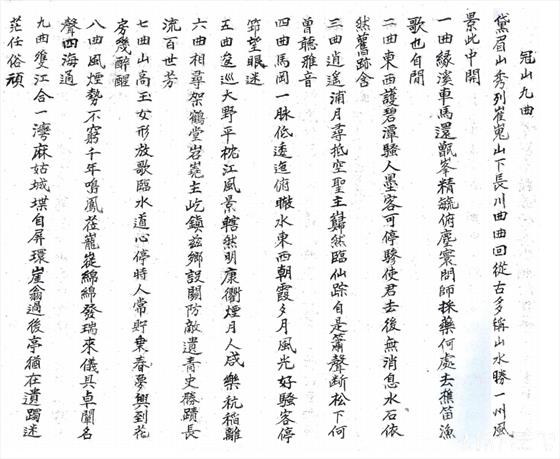 冠山九曲
黛眉山秀列崔嵬山下長川曲曲回從古多稱山水勝一州風
景此中開
一曲緣溪車馬還甑峯精毓俯塵寰問師採藥何處去樵笛漁
歌也自閒
二曲東西護碧潭騷人墨客可停驂使君去後無消息水石依
然舊跡含
三曲逍遙浦月尋抵空聖主巋然臨仙踪自是簫聲斷松下何
曾聽雅音
四曲馬岡一脉低逶迤俯瞰水東西朝霞夕月風光好騷客停
筇望眼迷
五曲巡大野平枕江風景轄然明康衢煙月人咸樂秔稲離
六曲相尋架鶴堂岩嶤主屹鎮茲鄉設關防敵遺青史勝蹟長
流百世芳
七曲山高玉女形放歌臨水道心停時人常貯衷春夢興到花
房幾醉醒
八曲風煙勢不窮千年鳴鳳莅巃嵸綿綿發瑞來儀具卓闌名
聲四海通
九曲雙江合一灣麻姑城堞自屏環崖翁過後亭猶在遺躅迷
茫任俗頑